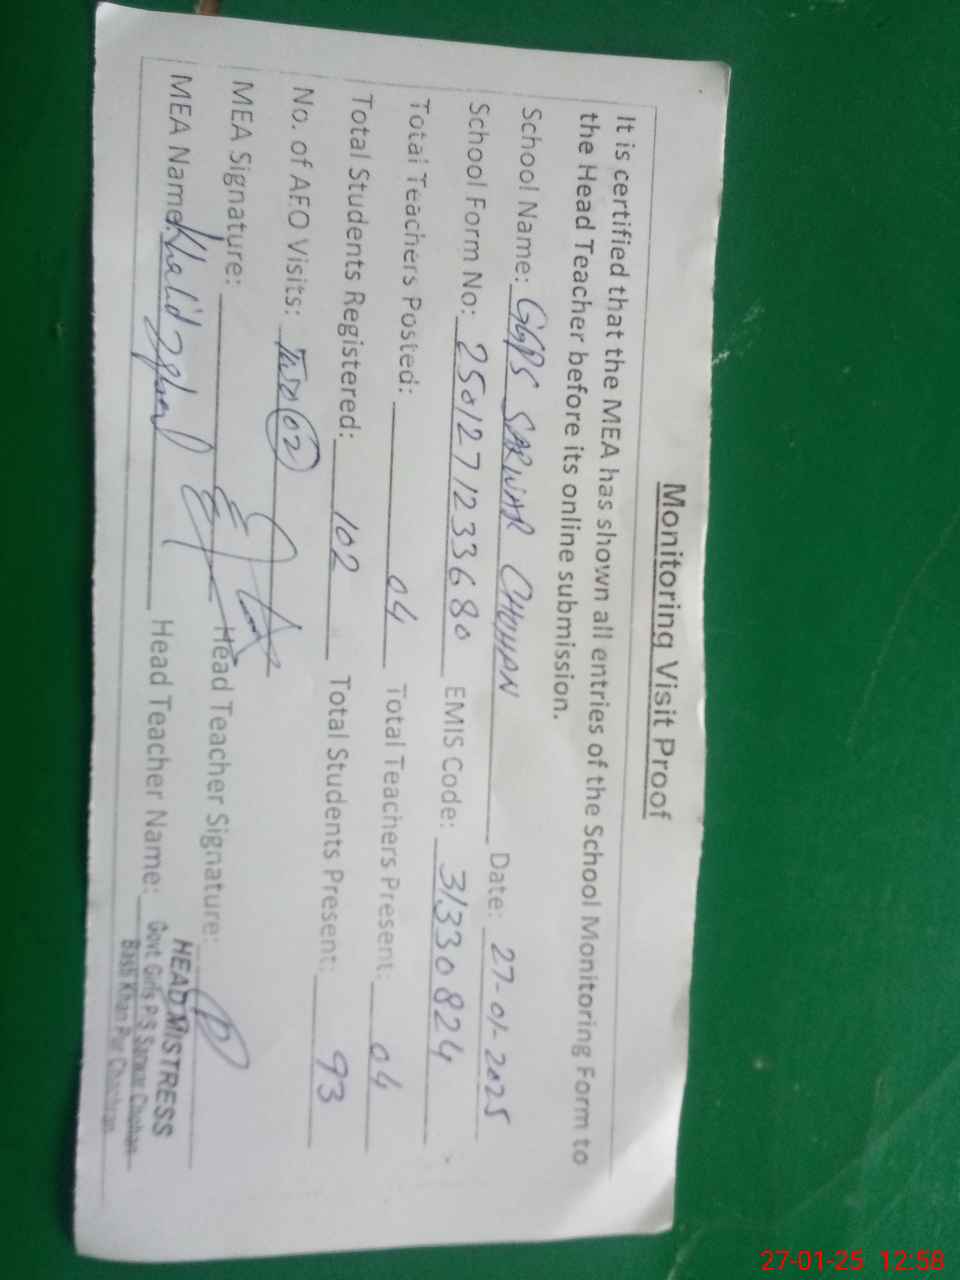 Monitoring Visit Proof
It is certified that the MEA has shown all entries of the School Monitoring Form to
the Head Teacher before its online submission.
School Name: GGPS SARWAR CHOHAN Date: 27-01-2025
School Form No: 2501271233680 EMIS Code: 31330824
Total Teachers Posted: 04 Total Teachers Present: 04
Total Students Registered: 102 Total Students Present: 93
No. of AEO Visits: Two 02
MEA Signature: Head Teacher Signature:
MEA Name: Khalid Head Teacher Name:
HEADMISTRESS
Govt Girls P/S Sarwar Chohan
Basti Khan Pur
27-01-25 12:58